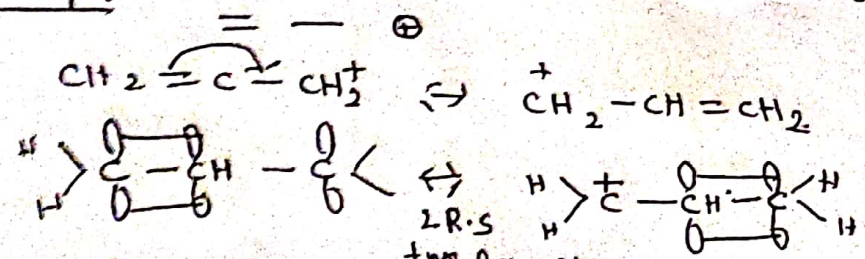 = — ⊕
CH2 = C — CH2+ ↔ +CH2 — CH = CH2
H H > C — CH — C < ↔ H H > C+ — CH — C < H H
2 R.S